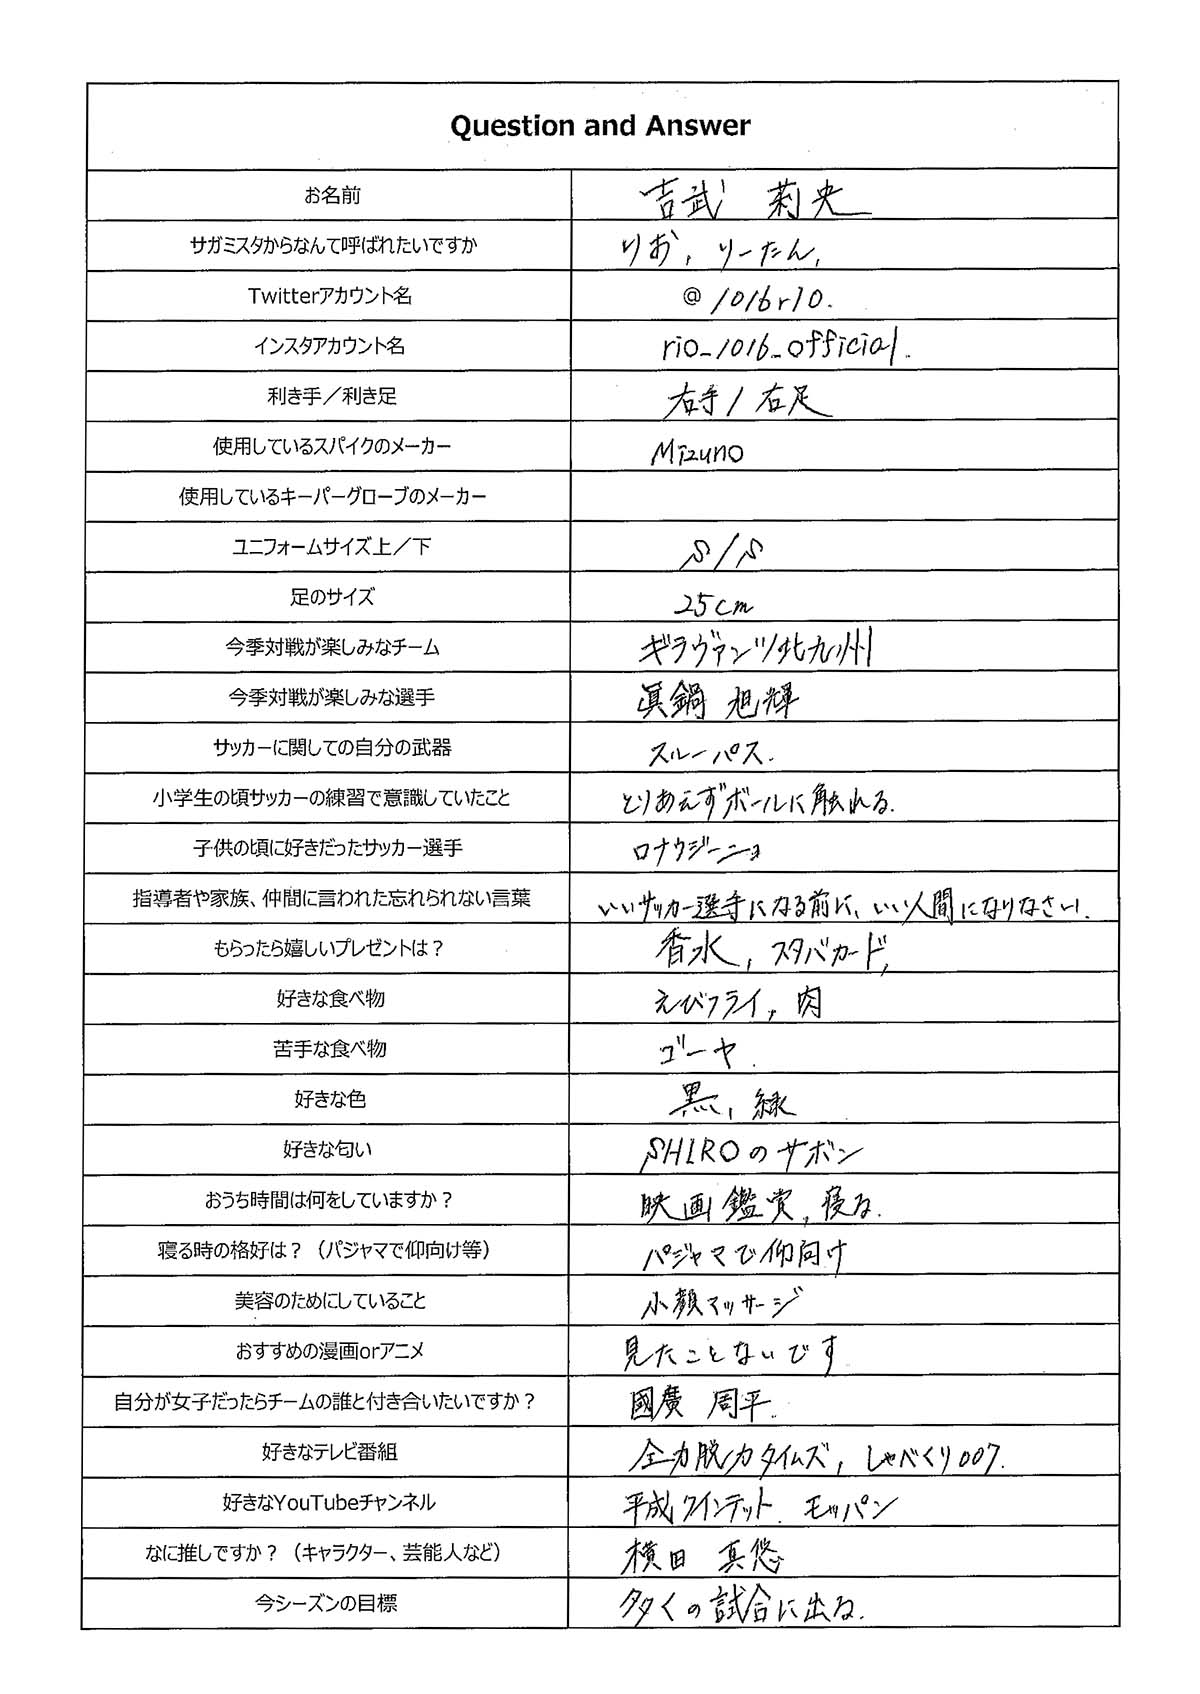 Question and Answer
お名前 吉武 莉央
サガミスタからなんて呼ばれたいですか りお, りーたん,
Twitterアカウント名 @1016r10.
インスタアカウント名 rio_1016_official.
利き手／利き足 右手/右足
使用しているスパイクのメーカー Mizuno
使用しているキーパーグローブのメーカー
ユニフォームサイズ上／下 S/S
足のサイズ 25cm
今季対戦が楽しみなチーム ギラヴァンツ北九州
今季対戦が楽しみな選手 眞鍋 旭輝
サッカーに関しての自分の武器 スルーパス.
小学生の頃サッカーの練習で意識していたこと とりあえずボールに触れる.
子供の頃に好きだったサッカー選手 ロナウジーニョ
指導者や家族、仲間に言われた忘れられない言葉 いいサッカー選手になる前に、いい人間になりなさい.
もらったら嬉しいプレゼントは？ 香水, スタバカード,
好きな食べ物 えびフライ, 肉
苦手な食べ物 ゴーヤ.
好きな色 黒, 緑
好きな匂い SHIROのサボン
おうち時間は何をしていますか？ 映画鑑賞, 寝る.
寝る時の格好は？（パジャマで仰向け等） パジャマで仰向け
美容のためにしていること 小顔マッサージ
おすすめの漫画orアニメ 見たことないです
自分が女子だったらチームの誰と付き合いたいですか？ 國廣 周平.
好きなテレビ番組 全力脱力タイムズ, しゃべくり007.
好きなYouTubeチャンネル 平成クインテット. モッパン
なに推しですか？（キャラクター、芸能人など） 横田 真悠
今シーズンの目標 多くの試合に出る.